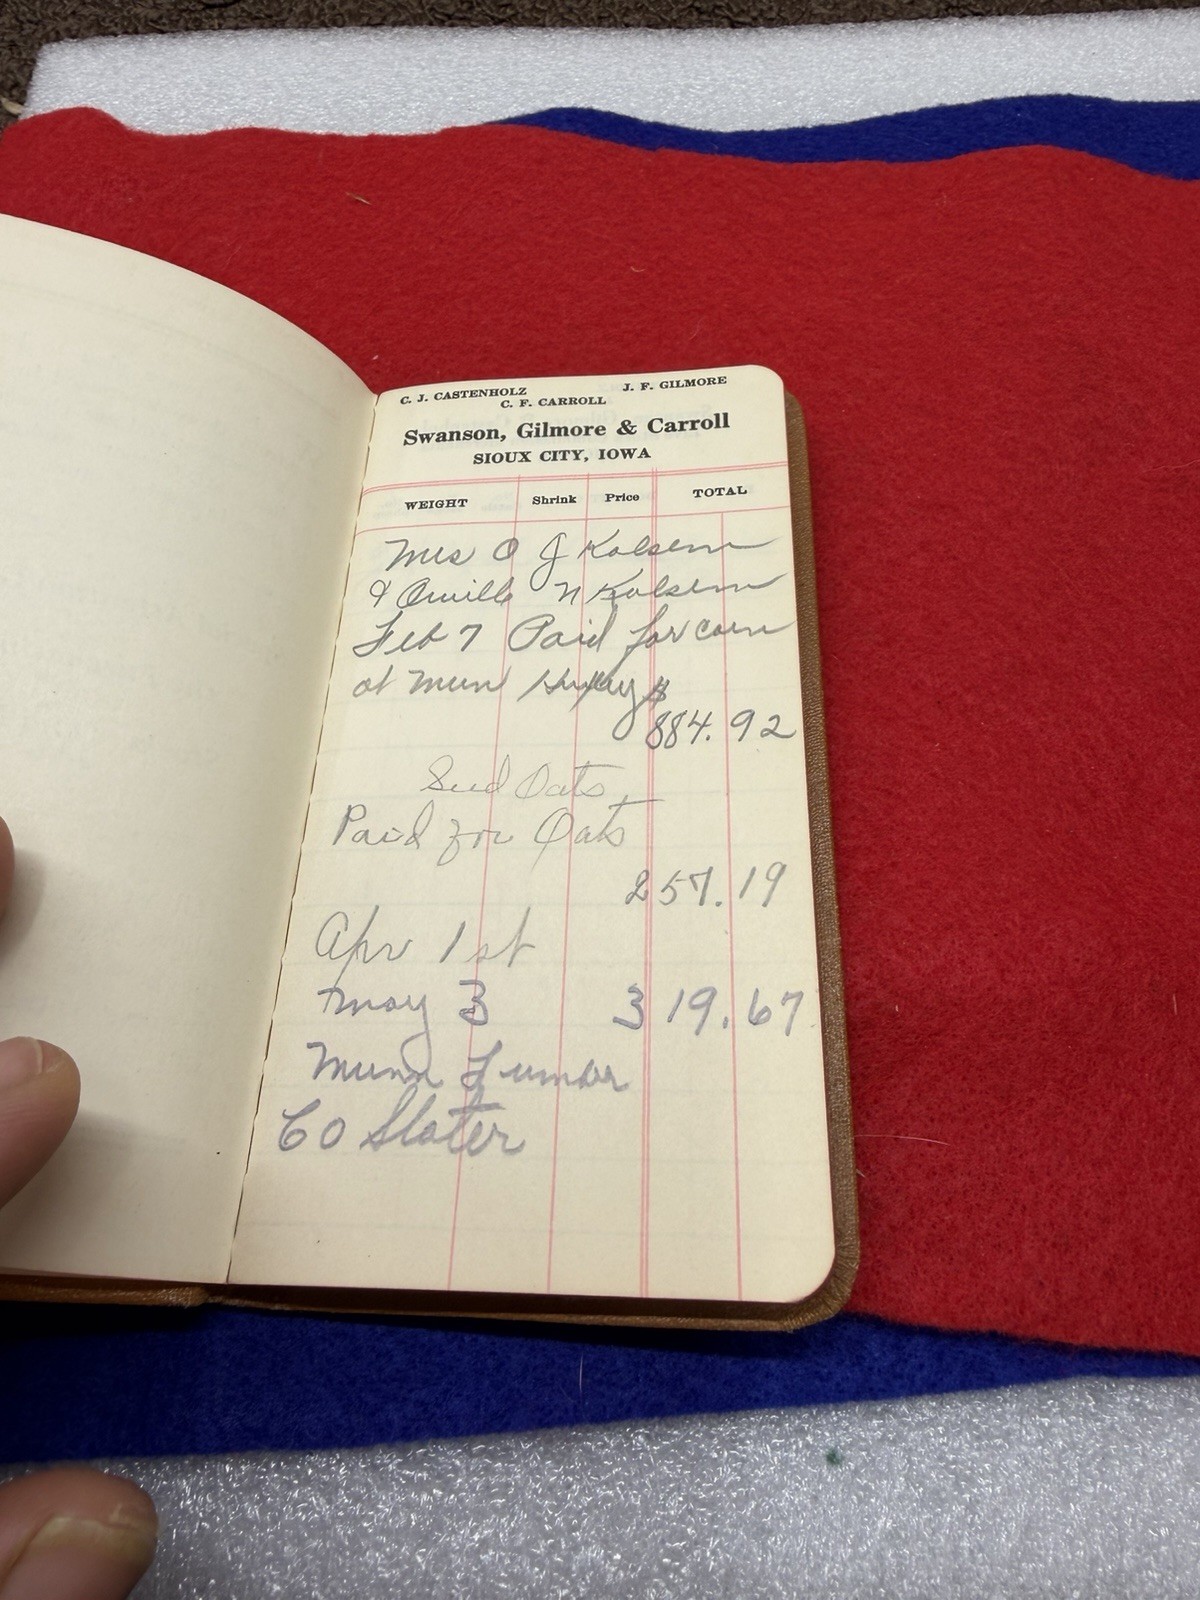 C. J. CASTENHOLZ J. F. GILMORE
C. F. CARROLL
Swanson, Gilmore & Carroll
SIOUX CITY, IOWA
WEIGHT Shrink Price TOTAL
Mrs O J Kalsem
& Orville N Kalsem
Feb 7 Paid for corn
at Munn Huxley $
884.92
Seed Oats
Paid for Oats
257.19
Apr 1st
May 3 319.67
Munn Lumber
Co Slater